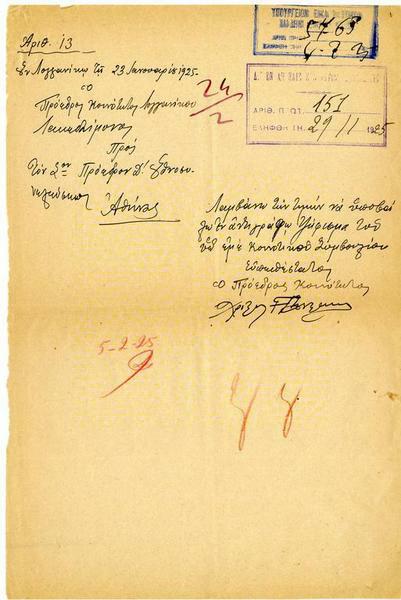 Ἀριθ. 13
Ἐν Λογγανίκῳ τῇ 23 Ἰανουαρίου 1925.
Ὁ
Πρόεδρος Κοινότητος Λογγανίκου
Λακεδαίμονος
Πρὸς
Τὸν Πρόεδρον Δ' Ἐθνοσυ-
νελεύσεως
Ἀθήνας
24/2
ΥΠΟΥΡΓΕΙΟΝ
5768
ΑΡΙΘ. ΠΡΩΤ. 151
ΕΛΗΦΘΗ ΤΗ 29 11 1925
Λαμβάνω τὴν τιμὴν νὰ ὑποβάλ
λω ἐν ἀντιγράφῳ ψήφισμα τοῦ
ὑπ' ἐμὲ Κοινοτικοῦ Συμβουλίου
Εὐπειθέστατος
Ὁ Πρόεδρος Κοινότητος
5-2-25